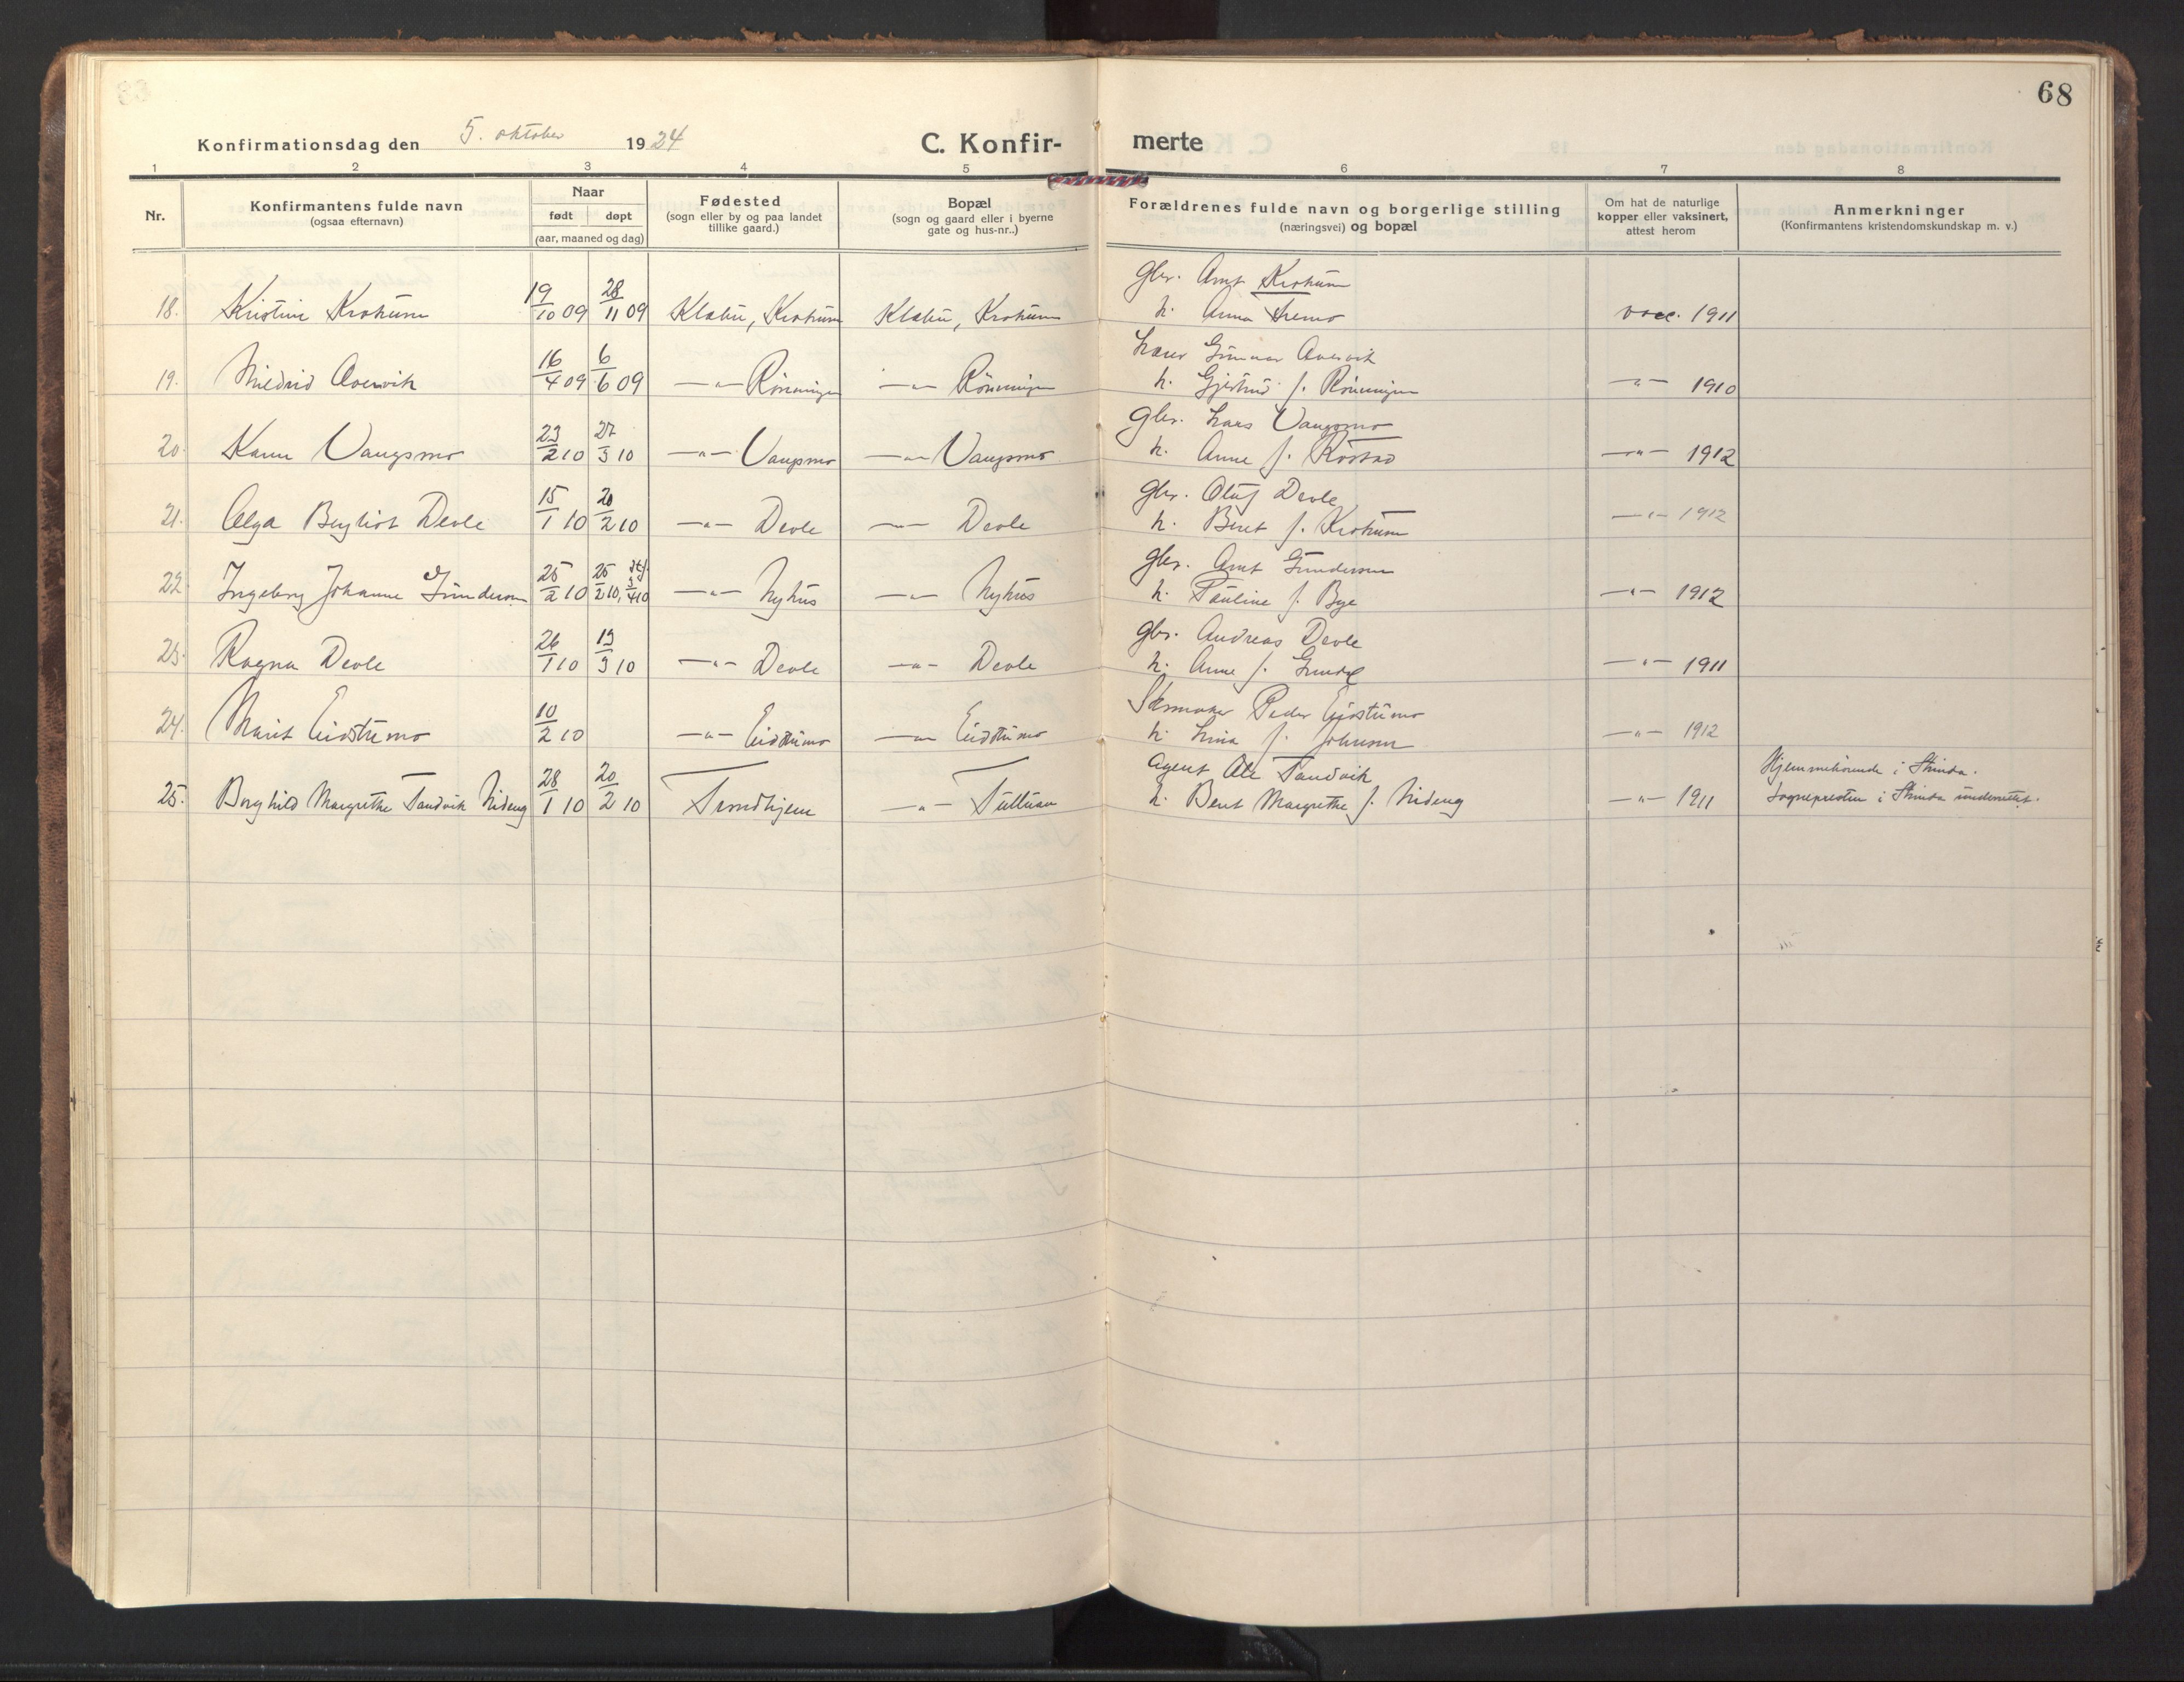 68
Konfirmationsdag den 5. oktober 1924 C. Konfir- merte
1 2 3 4 5 6 7 8
Nr.
Konfirmantens fulde navn
(ogsaa efternavn)
Naar
født døpt
(aar, maaned og dag)
Fødested
(sogn eller by og paa landet
tillike gaard.)
Bopæl
(sogn og gaard eller i byerne
gate og hus-nr..)
Forældrenes fulde navn og borgerlige stilling
(næringsvei) og bopæl
Om hat de naturlige
kopper eller vaksinert,
attest herom
Anmerkninger
(Konfirmantens kristendomskundskap m. v.)
gbr. Arnt Krokum
18. Kristine Krokum 19/10 09 28/11 09 Klæbu, Krokum Klæbu, Krokum h. Anna vacc. 1911
Lærer Gunnar Avervik
19. Mildrid Avervik 16/4 09 6/6 09 —"— Rönningen —"— Rönningen h. Gjertrud f. Rönningen —"— 1910
gbr. Lars Vangsmo
20. Karen Vangsmo 23/2 10 27/3 10 —"— Vangsmo —"— Vangsmo h. Anne f. Rostad —"— 1912
gbr. Oluf Devle
21. Olga Bergliot Devle 15/1 10 20/2 10 —"— Devle —"— Devle h. Beret f. Krokum —"— 1912
gbr. Arnt Gundersen
22. Ingeborg Johanne Gundersen 25/2 10 25/2 10, 3/4 10 —"— Nyhus —"— Nyhus h. Pauline f. Bye —"— 1912
gbr. Andreas Devle
23. Ragna Devle 26/1 10 13/3 10 —"— Devle —"— Devle h. Anne f. —"— 1911
Skomaker Peder Eidstumo
24. Marit Eidstumo 10/2 10 —"— Eidstumo —"— Eidstumo h. Lina f. Johnsen —"— 1912
Agent Ole Tandvik Hjemmehörende i Strinda.
25. Borghild Margrethe Tandvik Nideng 28/1 10 20/2 10 Trondhjem —"— Tulluan h. Beret Margrethe f. Nideng —"— 1911 Sognepresten i Strinda underrettet.